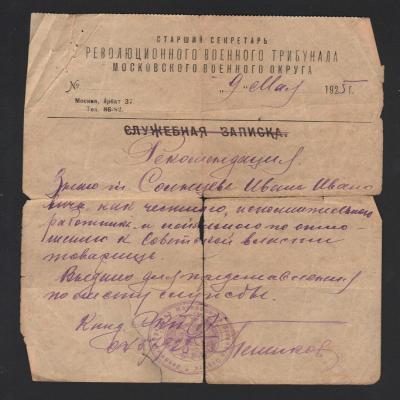 СТАРШИЙ СЕКРЕТАРЬ
РЕВОЛЮЦИОННОГО ВОЕННОГО ТРИБУНАЛА
МОСКОВСКОГО ВОЕННОГО ОКРУГА
№ "9" мая 1925 г.
Москва, Арбат 37.
Тел. 86-82.
СЛУЖЕБНАЯ ЗАПИСКА.
Рекомендация.
Знаю т. Ивана Ивано
вича как честного, исполнительного
работника и по отно-
шению к Советской власти
товарища.
Выдано для представления
по месту службы.
Канд. РКП